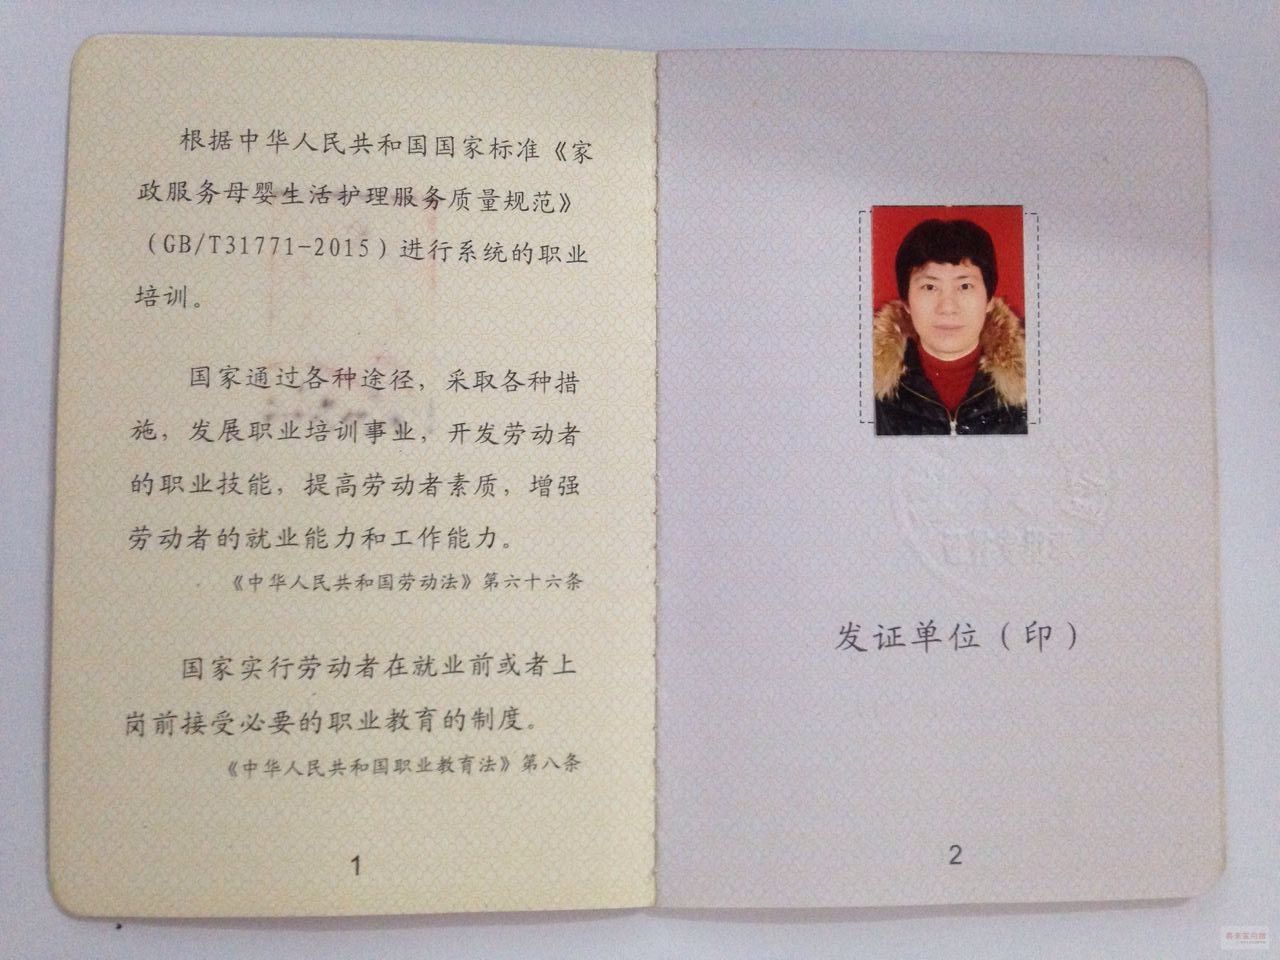 根据中华人民共和国国家标准《家
政服务母婴生活护理服务质量规范》
（GB/T31771-2015）进行系统的职业
培训。
国家通过各种途径，采取各种措
施，发展职业培训事业，开发劳动者
的职业技能，提高劳动者素质，增强
劳动者的就业能力和工作能力。
《中华人民共和国劳动法》第六十六条
国家实行劳动者在就业前或者上
岗前接受必要的职业教育的制度。
《中华人民共和国职业教育法》第八条
1
发证单位（印）
2